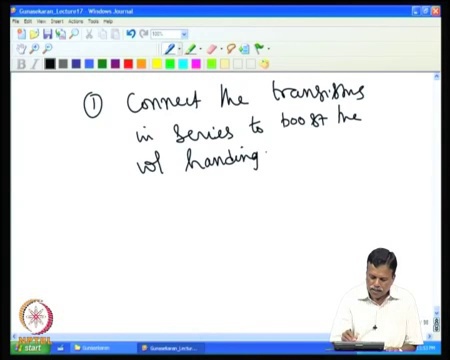 Gunasekaran_Lecture17 - Windows Journal
File Edit View Insert Actions Tools Help
100%
B I
① Connect the transistors
in series to boost the
vol handing.
NPTEL
start Gunasekaran Gunasekaran_Lec